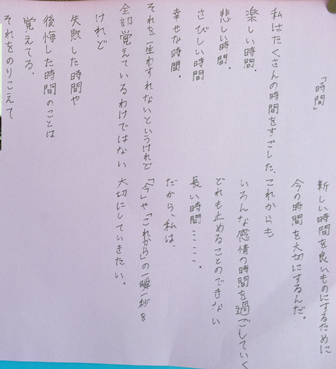 「時間」
私はたくさんの時間をすごした、
楽しい時間、
悲しい時間、
さびしい時間
幸せな時間。
それを一生わすれないというけれど
全部覚えているわけではない
けれど
失敗した時間や
後悔した時間のことは
覚えてる。
それをのりこえて
新しい時間を良いものにするために
今の時間を大切にするんだ。
これからも
いろんな感情の時間を過ごしていく
どれも止めることのできない
長い時間……
だから、私は、
「今」や「これから」の一瞬一秒を
大切にしていきたい。